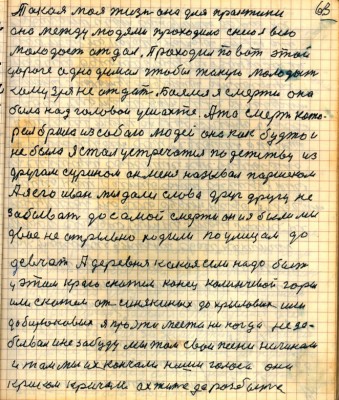 63
Такая моя жизнь она для практики
она между людями проходила с нею я всю
молодость отдал. Проходил по вот этой
дороге одно думал чтобы такую молодыш
кому зря не отдат. Боялся я смерти она
была над головой у шахте. А та смерть кото-
рая брала из собою людей она как будто и
не была Я стал устречатся по детству из
другом сурином он меня называл паршеком
А я его иван мы дали слова друг другу не
забыват до самой смерти он и я были мы
двое не отрывно ходили по улицам до
девчат. А деревня какая если надо быт
у этом краю скажем конец калинчивой горы
или скажем от синякиных до хриповых или
до бирюковых я про эти места ни когда не за-
бывал и не забуду мы там свои песни начинали
и там мы их кончали наши голоса они
криком кричали ах жите дорогое бытие